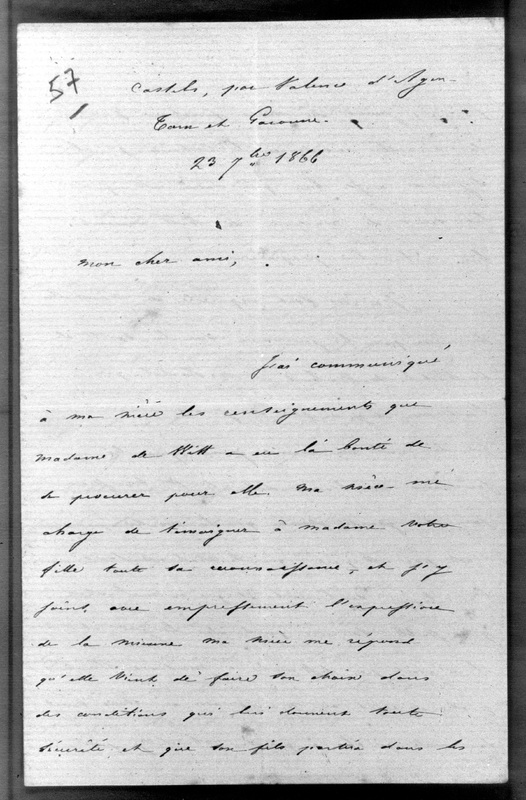 57
Castels, par Valence d'Agen
Tarn et Garonne.
23 7bre 1866
Mon cher ami,
J'ai communiqué
à ma nièce les renseignements que
madame de Witt a eu la bonté de
se procurer pour elle. Ma nièce me
charge de témoigner à madame votre
fille toute sa reconnaissance, et j'y
joins avec empressement l'expression
de la mienne. Ma nièce me répond
qu'elle vient de faire son choix dans
des conditions qui lui donnent toute
sécurité et que son fils partira dans les